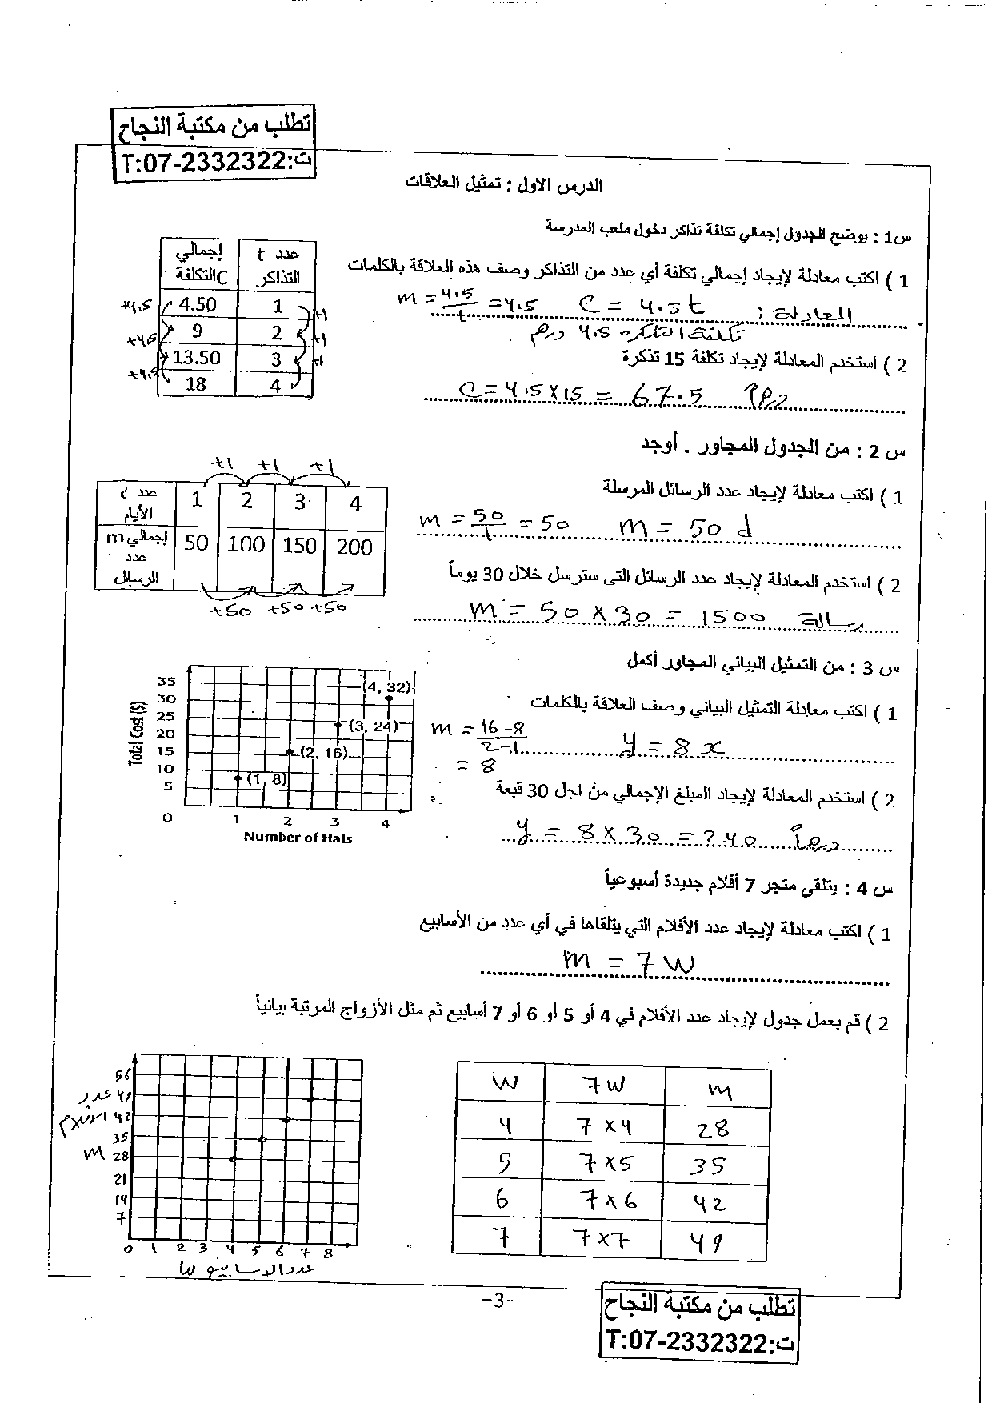 تطلب من مكتبة النجاح
ت:T:07-2332322
الدرس الاول : تمثيل العلاقات
س1 : يوضح الجدول إجمالي تكلفة تذاكر دخول ملعب المدرسة
1 ) اكتب معادلة لإيجاد إجمالي تكلفة أي عدد من التذاكر وصف هذه العلاقة بالكلمات
المعادلة : C = 4.5t m = 4.5/1 = 4.5
تكلفة التذكرة 4.5 درهم
2 ) استخدم المعادلة لإيجاد تكلفة 15 تذكرة
C = 4.5 x 15 = 67.5 درهم
عدد t التذاكر إجمالي C التكلفة
1 4.50
2 9
3 13.50
4 18
+1 +1 +1
+4.5 +4.5 +4.5
س 2 : من الجدول المجاور . أوجد
1 ) اكتب معادلة لإيجاد عدد الرسائل المرسلة
m = 50/1 = 50 m = 50 d
2 ) استخدم المعادلة لإيجاد عدد الرسائل التى سترسل خلال 30 يوماً
m = 50 x 30 = 1500 رسالة
+1 +1 +1
عدد d الأيام 1 2 3 4
إجمالي m عدد الرسائل 50 100 150 200
+50 +50 +50
س 3 : من التمثيل البياني المجاور أكمل
1 ) اكتب معادلة التمثيل البياني وصف العلاقة بالكلمات
m = 16-8/2-1 y = 8x
= 8
2 ) استخدم المعادلة لإيجاد المبلغ الإجمالي من اجل 30 قبعة
y = 8 x 30 = 240 درهم
Total Cost ($)
35
30
25
20
15
10
5
0 1 2 3 4
(4, 32)
(3, 24)
(2, 16)
(1, 8)
Number of Hats
س 4 : يتلقى متجر 7 أقلام جديدة أسبوعياً
1 ) اكتب معادلة لإيجاد عدد الأقلام التي يتلقاها في أي عدد من الأسابيع
m = 7W
2 ) قم بعمل جدول لإيجاد عدد الأقلام في 4 أو 5 أو 6 أو 7 أسابيع ثم مثل الأزواج المرتبة بيانياً
W 7W m
4 7x4 28
5 7x5 35
6 7x6 42
7 7x7 49
عدد الاقلام m
56
49
42
35
28
21
14
7
0 1 2 3 4 5 6 7 8
عدد الاسابيع W
-3-
تطلب من مكتبة النجاح
ت:T:07-2332322